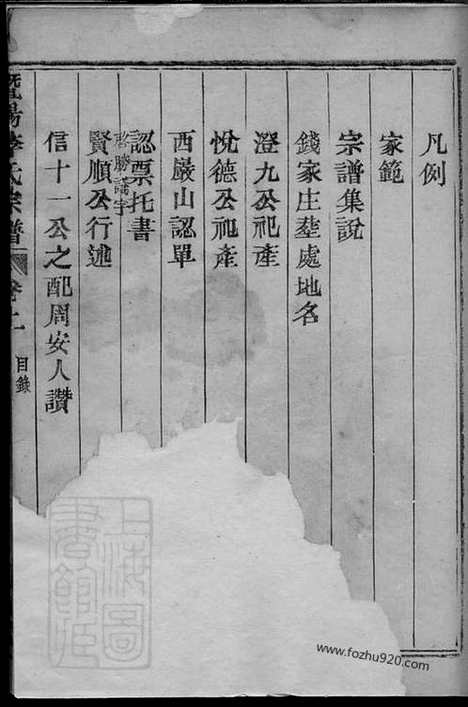 凡例
家範
宗譜集說
錢家庄塋處地名
澄九公祀產
悅德公祀產
西巖山認單
認票托書
賢順公行述
信十一公之配周安人讚
暨陽李氏宗譜 卷二 目錄
上海圖書館藏
www.fozhu920.com